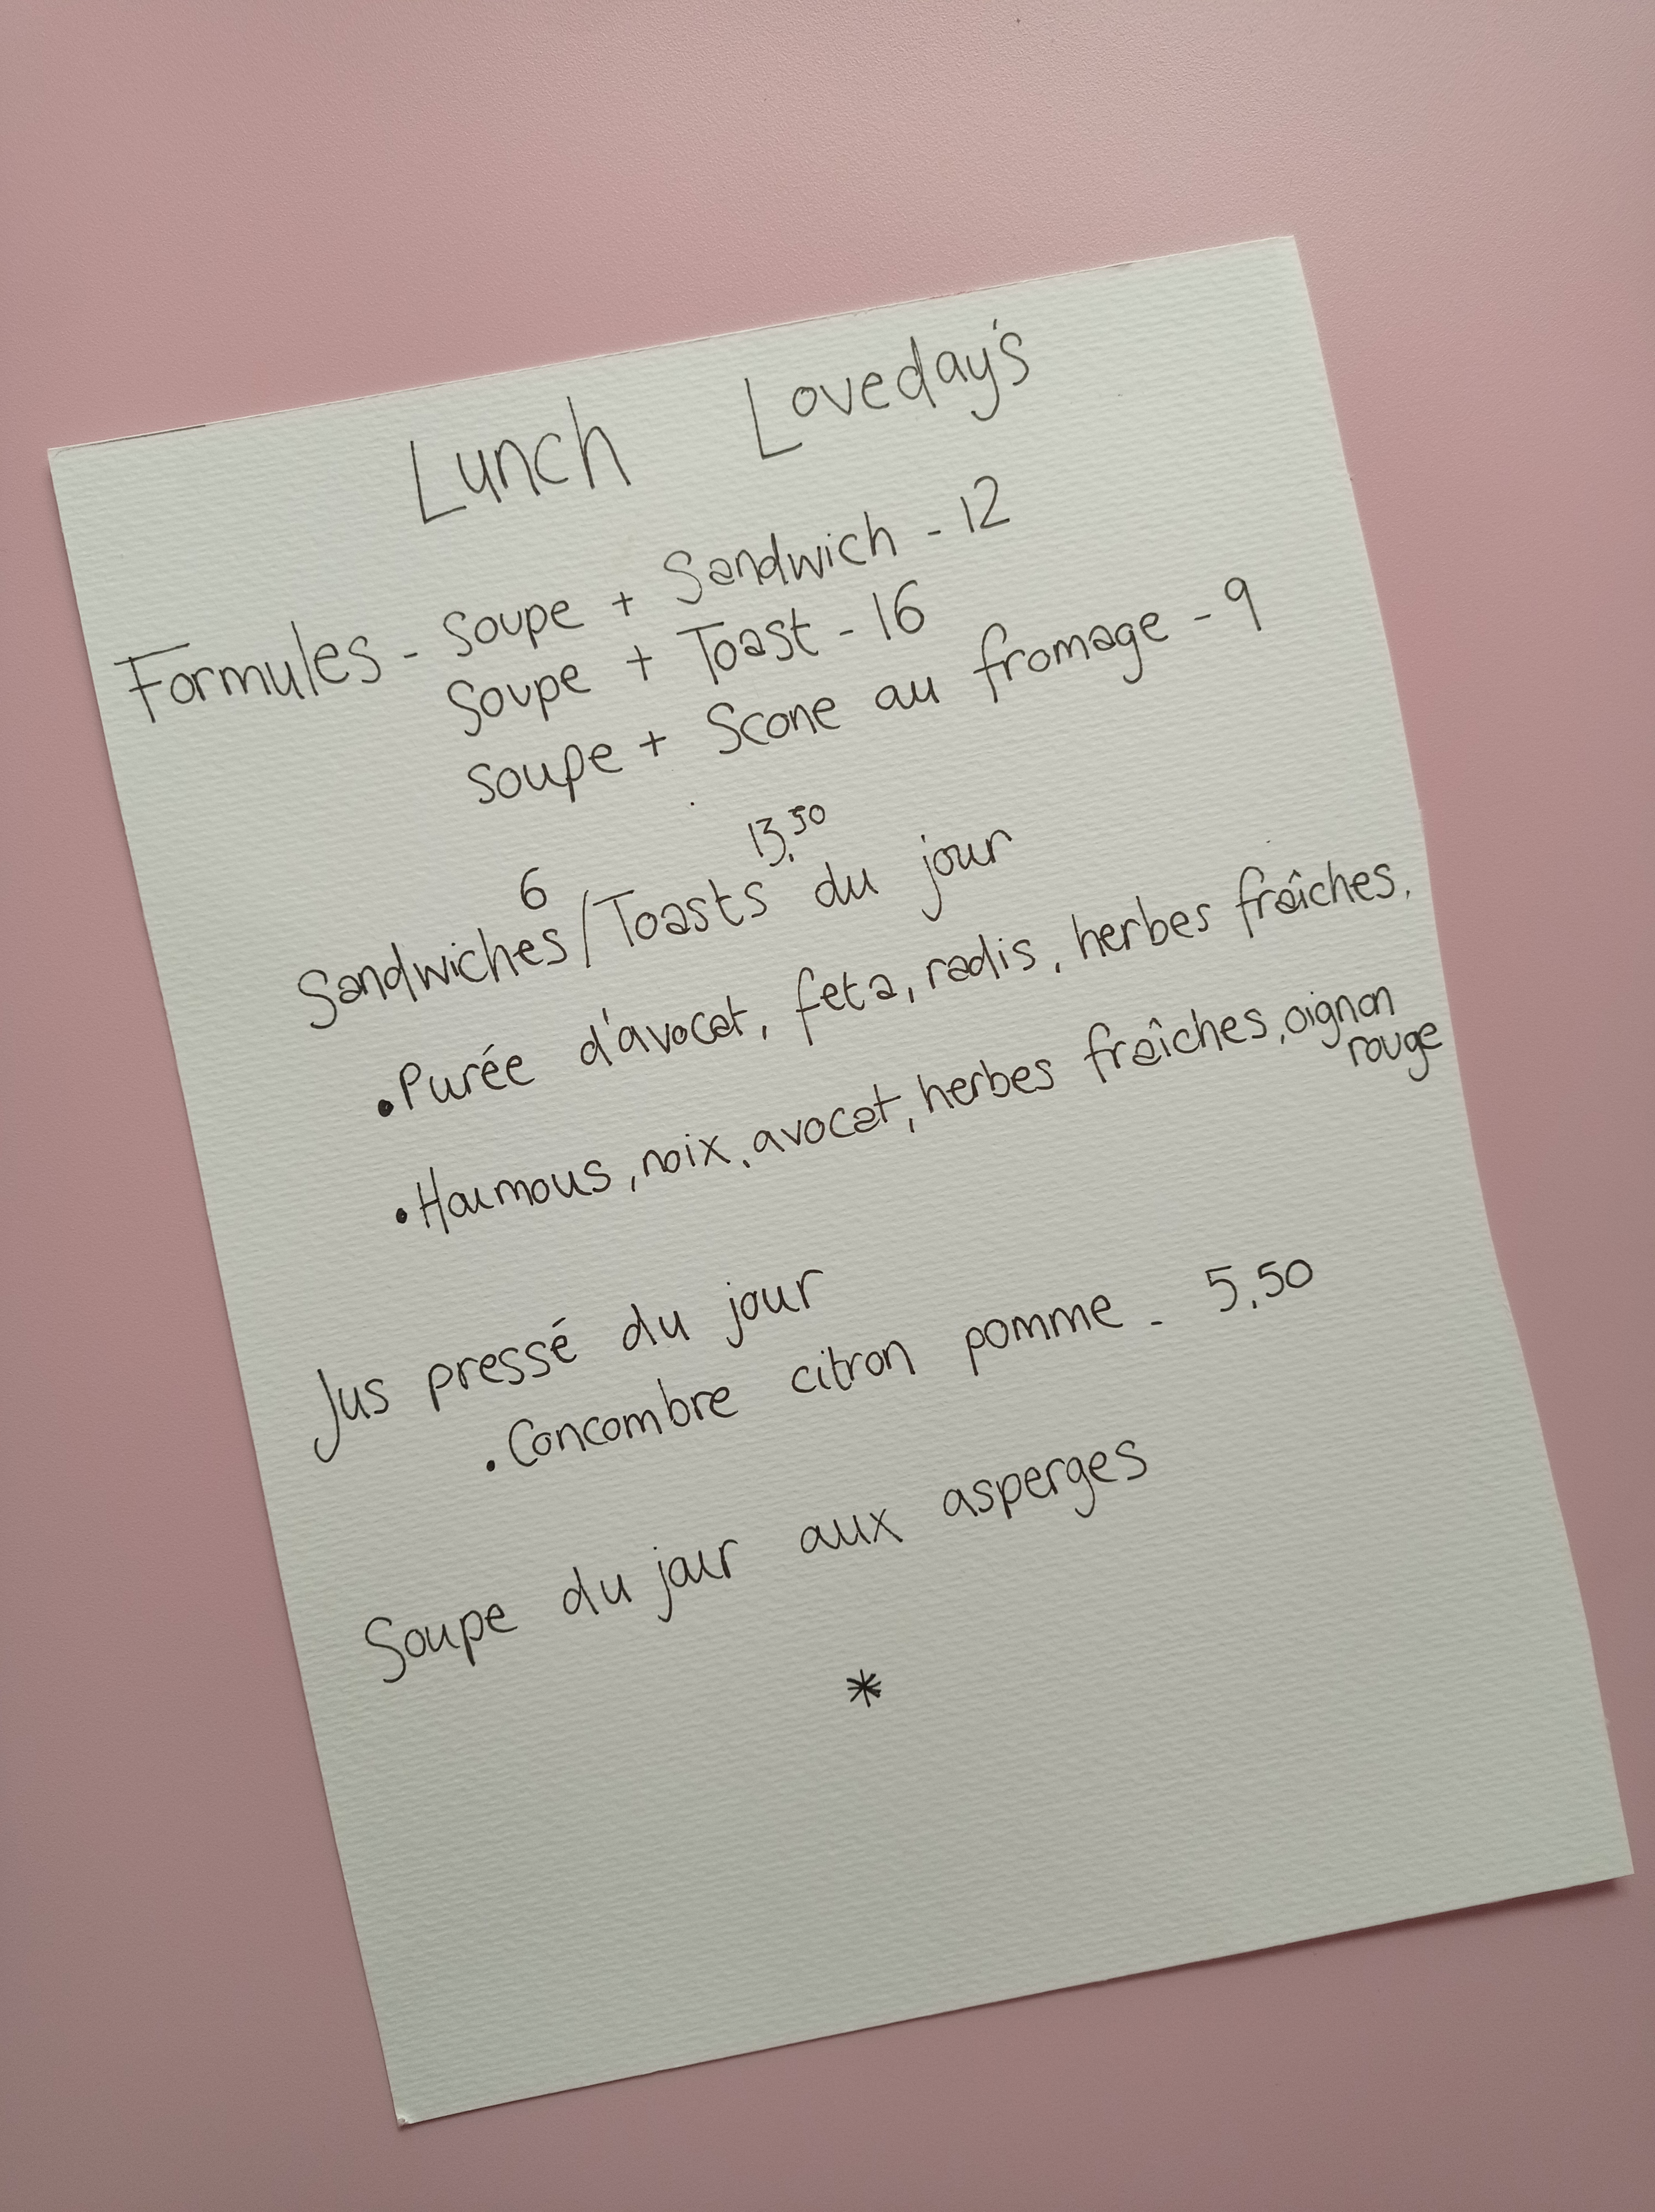 Lunch Loveday's
Formules - Soupe + Sandwich - 12
Soupe + Toast - 16
Soupe + Scone au fromage - 9
6 13,50
Sandwiches/Toasts du jour
• Purée d'avocat, feta, radis, herbes fraîches.
• Houmous, noix, avocat, herbes fraîches, oignon
rouge
Jus pressé du jour
• Concombre citron pomme - 5,50
Soupe du jour aux asperges
*